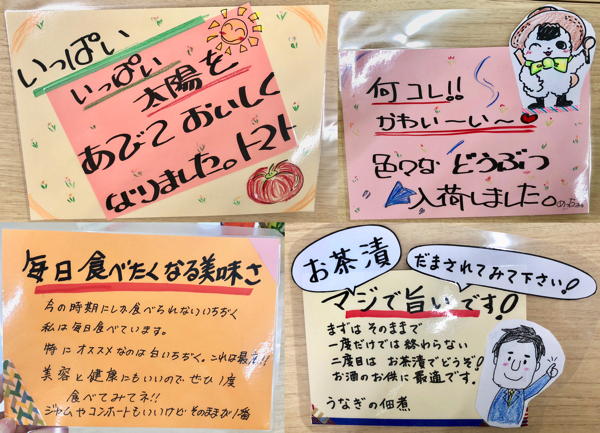 いっぱい
いっぱい
太陽を
あびて おいしく
なりました。トマト
何コレ!!
かわい〜い〜
色々な どうぶつ
入荷しました。
毎日食べたくなる美味さ
今の時期にしか食べられないいちぢく
私は毎日食べています。
特にオススメなのは白いちぢく。これは最高!!
美容と健康にもいいので ぜひ1度
食べてみてネ!!
ジャムやコンポートもいいけど そのままが1番
お茶漬
だまされてみて下さい!
マジで旨いです!
まずは そのままで
一度だけでは 終わらない
二度目は お茶漬でどうぞ!
お酒のお供に 最適です。
うなぎの佃煮